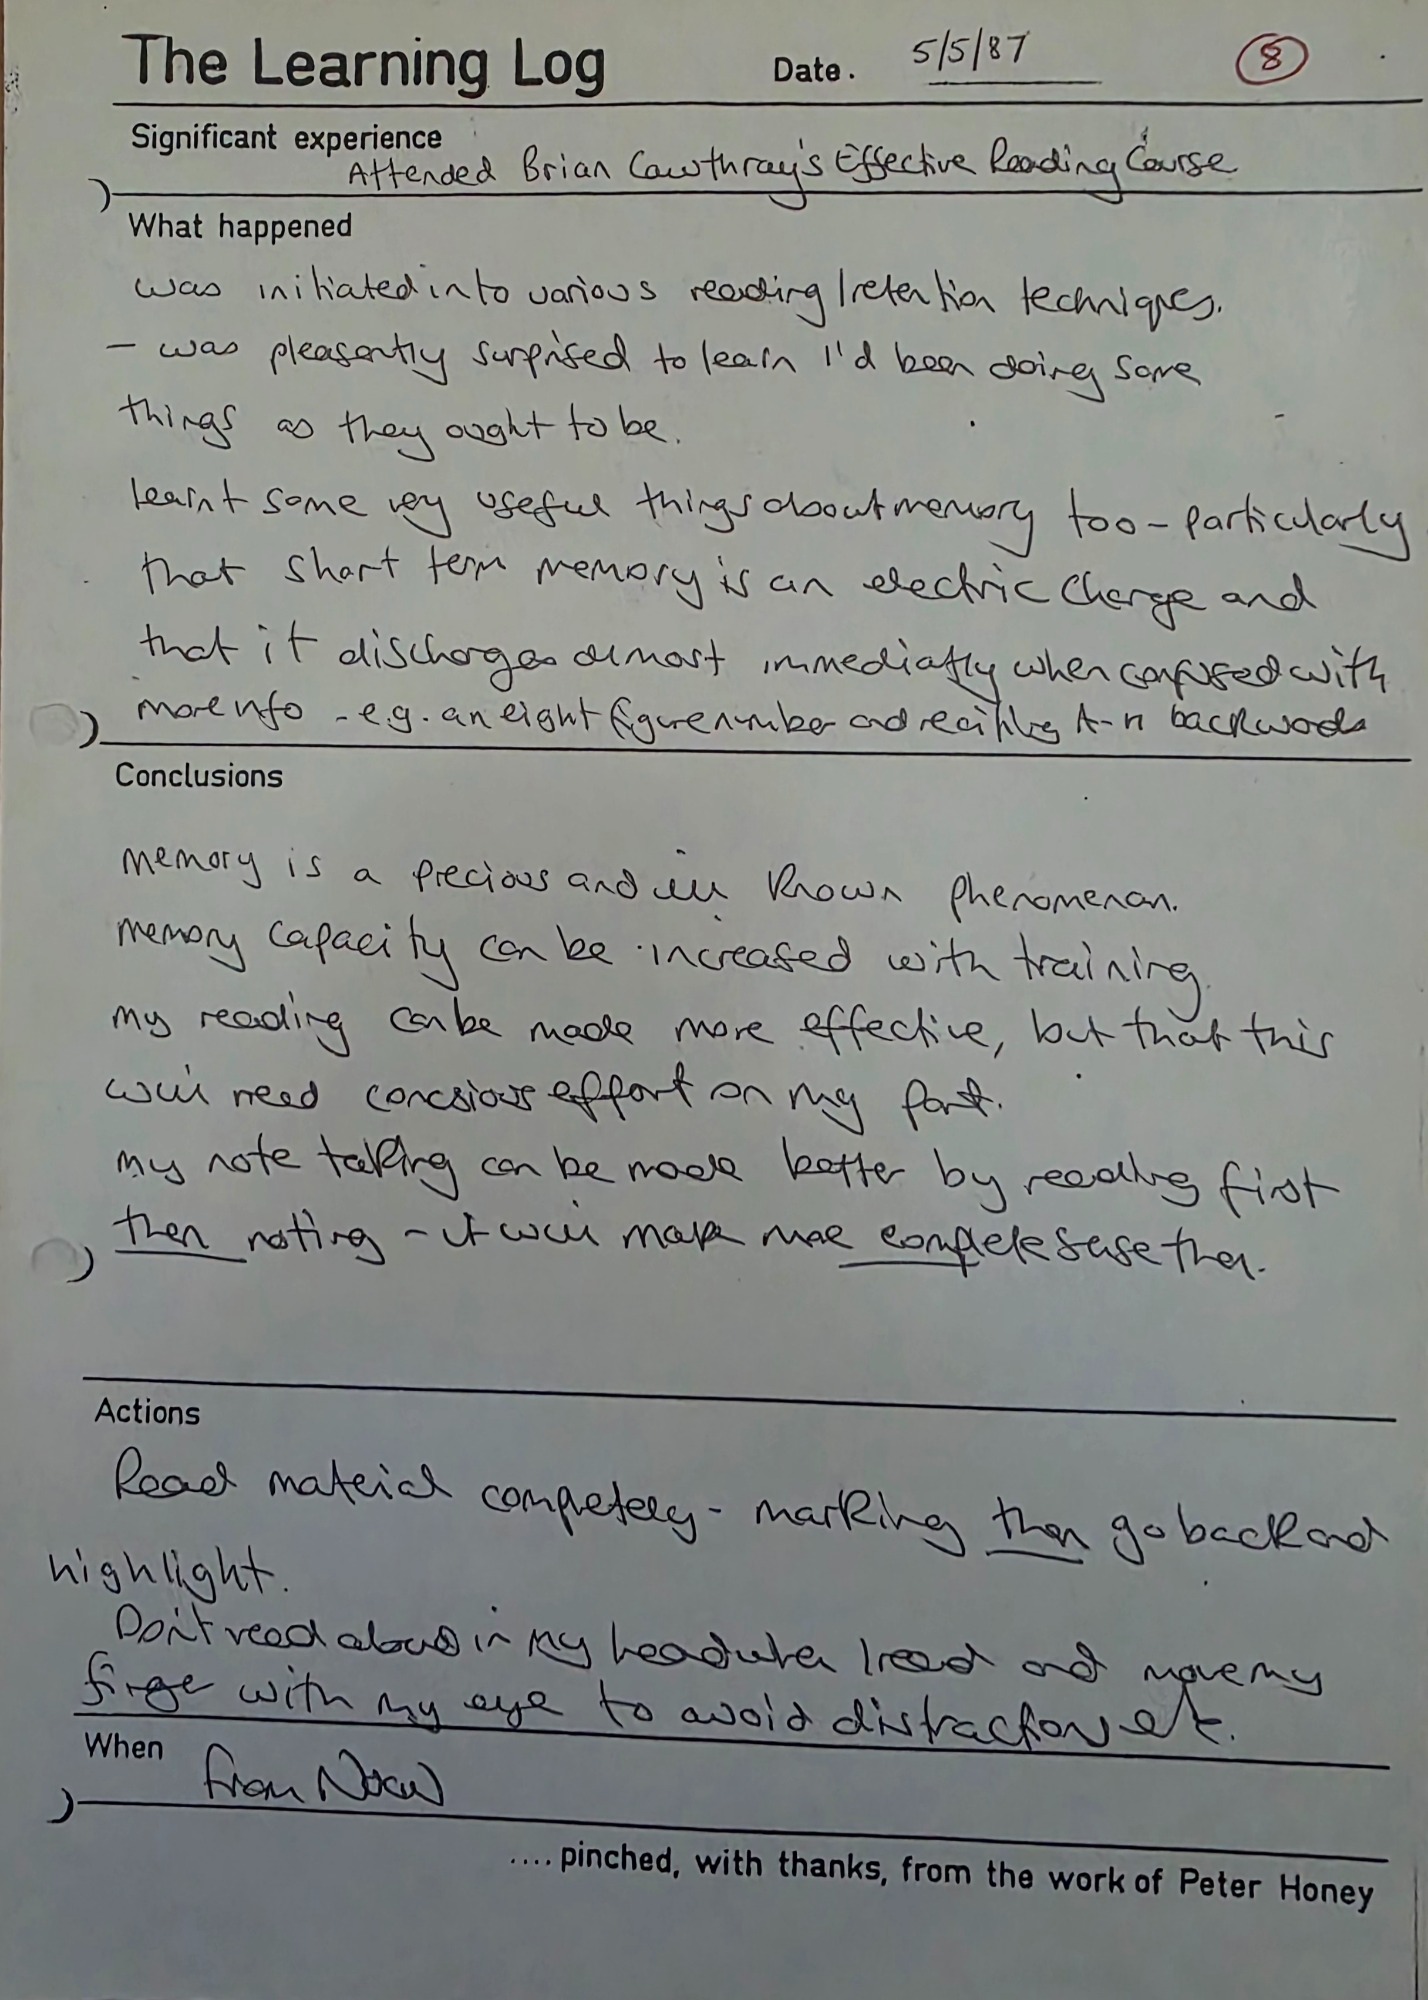 The Learning Log Date. 5/5/87 8
Significant experience
Attended Brian Cawthray's Effective Reading Course
What happened
was initiated into various reading/retention techniques.
- was pleasently surprised to learn I'd been doing some
things as they ought to be.
learnt some very useful things about memory too - particularly
that short term memory is an electric charge and
that it discharges almost immediatly when confused with
more info - e.g. an eight figure number and reciting A-H backwards
Conclusions
memory is a precious and ill known phenomenon.
memory capacity can be increased with training.
my reading can be made more effective, but that this
will need concsious effort on my part.
my note taking can be made better by reading first
then noting - it will make more complete sense then.
Actions
Read material completely - marking then go back and
highlight.
Don't read aloud in my head when I read and move my
finger with my eye to avoid distraction etc.
When
from Now
.... pinched, with thanks, from the work of Peter Honey